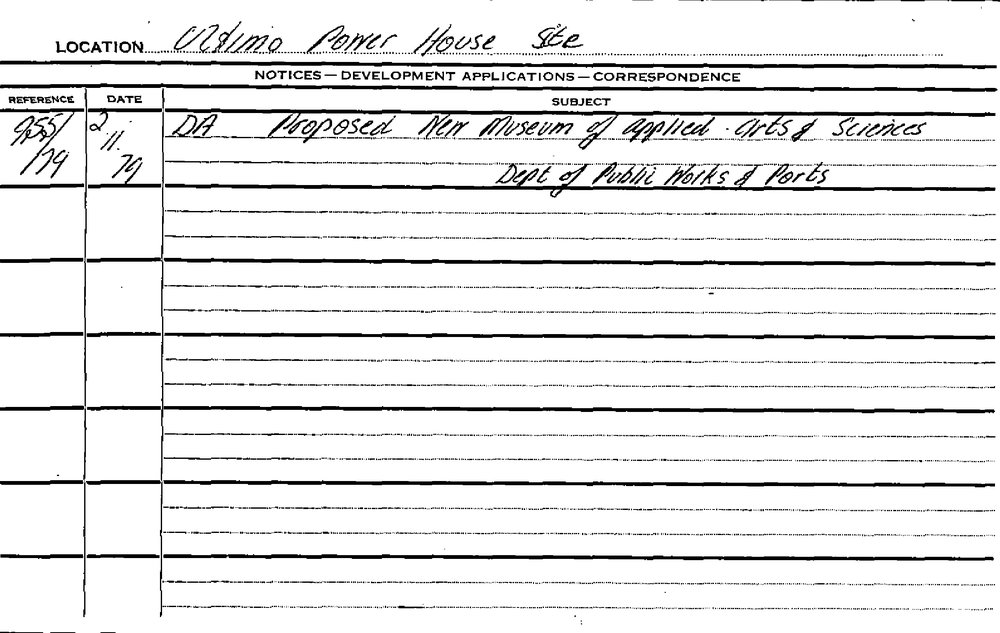 LOCATION Ultimo Power House Site
NOTICES — DEVELOPMENT APPLICATIONS — CORRESPONDENCE
REFERENCE DATE SUBJECT
955/ 2. DA Proposed New Museum of Applied Arts & Sciences
/79 11.
79 Dept of Public Works & Ports